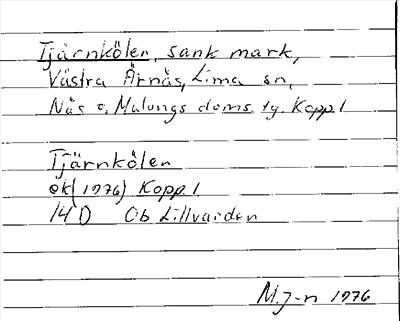 Tjärnkölen, sank mark,
Västra Ärnäs, Lima sn,
Nås o. Malungs doms. tg. Kopp.l
Tjärnkölen
ek (1976) Kopp.l.
14 D Ob Lillvarden
M.J-n 1976